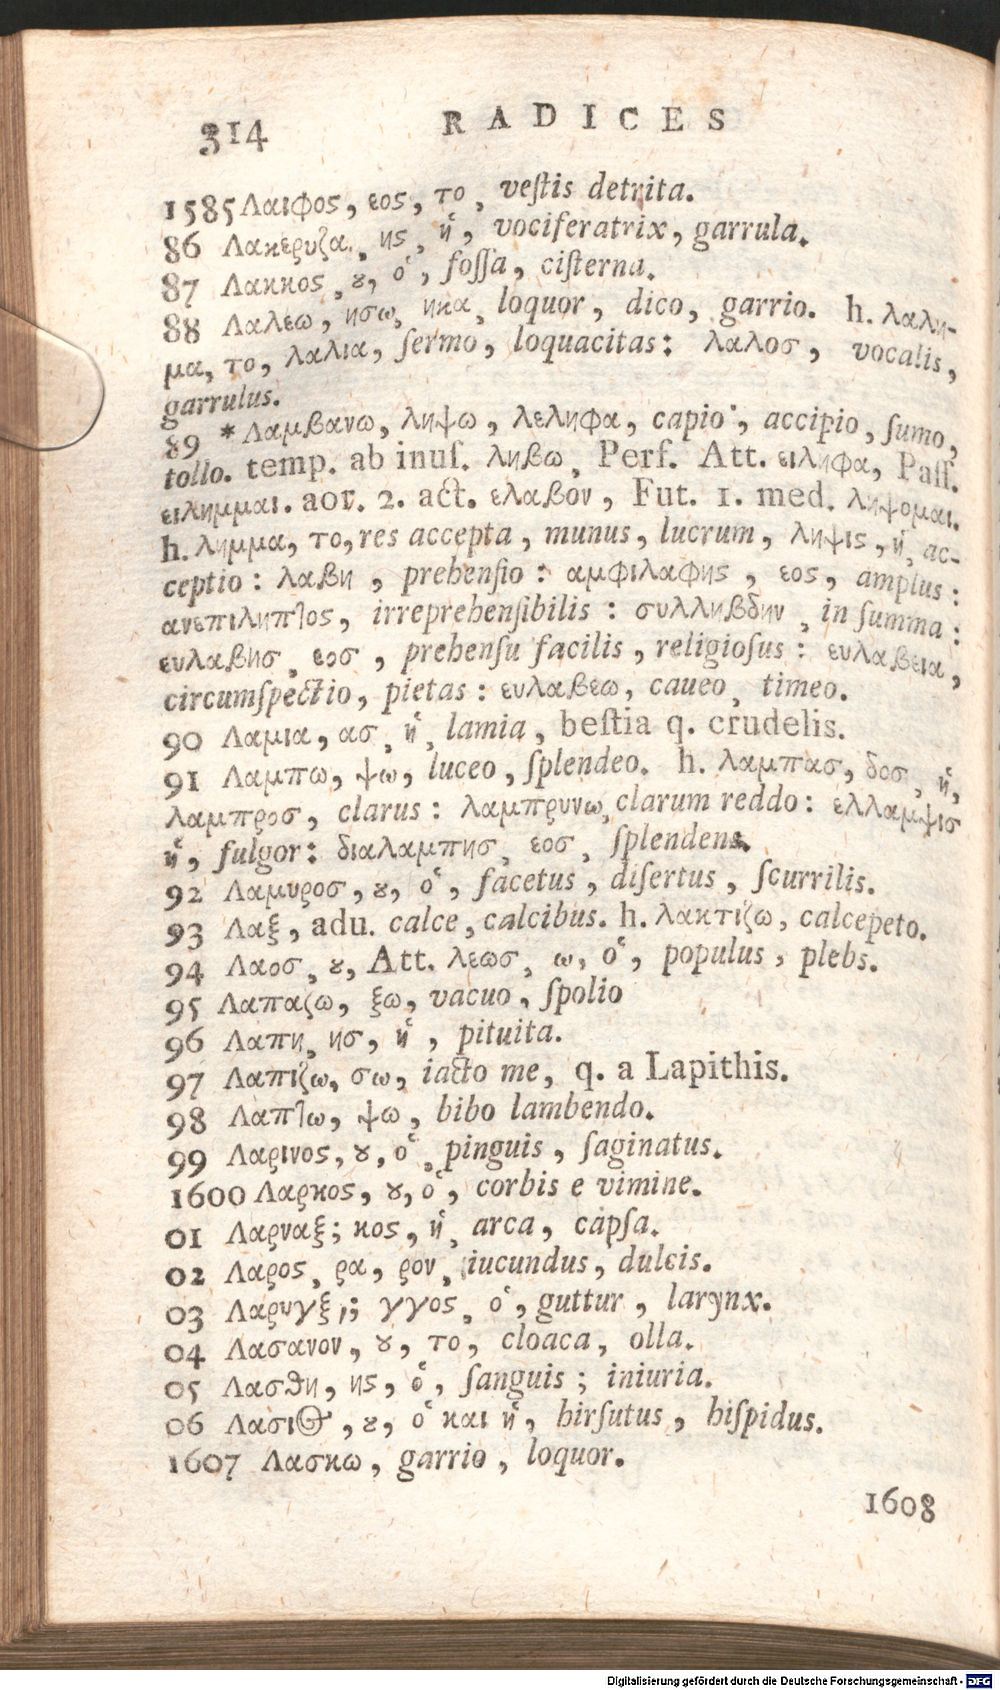 314 RADICES
1585 Λαιφος, εος, το, veſtis detrita.
86 Λακερυζα, ης, ἡ, vociferatrix, garrula.
87 Λακκος, ȣ, ὁ, foſſa, ciſterna.
88 Λαλεω, ησω, ηκα, loquor, dico, garrio. h. λαλη-
μα, το, λαλια, ſermo, loquacitas: λαλοσ, vocalis,
garrulus.
89 *Λαμβανω, ληψω, λεληφα, capio, accipio, ſumo,
tollo. temp. ab inuſ. ληβω, Perf. Att. ειληφα, Paſſ.
ειλημμαι. aor. 2. act. ελαβον, Fut. 1. med. ληψομαι.
h. λημμα, το, res accepta, munus, lucrum, ληψις, ἡ, ac-
ceptio: λαβη, prehenſio: αμφιλαφης, εος, amplus:
ανεπιληπτος, irreprehenſibilis: συλληβδην, in ſumma:
ευλαβησ, εοσ, prehenſu facilis, religioſus: ευλαβεια,
circumſpectio, pietas: ευλαβεω, caueo, timeo.
90 Λαμια, ασ, ἡ, lamia, beſtia q. crudelis.
91 Λαμπω, ψω, luceo, ſplendeo. h. λαμπασ, δοσ, ἡ,
λαμπροσ, clarus: λαμπρυνω, clarum reddo: ελλαμψισ
ἡ, fulgor: διαλαμπησ, εοσ, ſplendens.
92 Λαμυροσ, ȣ, ὁ, facetus, diſertus, ſcurrilis.
93 Λαξ, adu. calce, calcibus. h. λακτιζω, calcepeto.
94 Λαοσ, ȣ, Att. λεωσ, ω, ὁ, populus, plebs.
95 Λαπαζω, ξω, vacuo, ſpolio
96 Λαπη, ησ, ἡ, pituita.
97 Λαπιζω, σω, iacto me, q. a Lapithis.
98 Λαπτω, ψω, bibo lambendo.
99 Λαρινος, ȣ, ὁ, pinguis, ſaginatus.
1600 Λαρκος, ȣ, ὁ, corbis e vimine.
01 Λαρναξ; κος, ἡ, arca, capſa.
02 Λαρος, ρα, ρον, iucundus, dulcis.
03 Λαρυγξ,; γγος, ὁ, guttur, larynx.
04 Λασανον, ȣ, το, cloaca, olla.
05 Λασθη, ης, ὁ, ſanguis; iniuria.
06 Λασιος, ȣ, ὁ και ἡ, hirſutus, hiſpidus.
1607 Λασκω, garrio, loquor.
1608
Digitalisierung gefördert durch die Deutsche Forschungsgemeinschaft - DFG